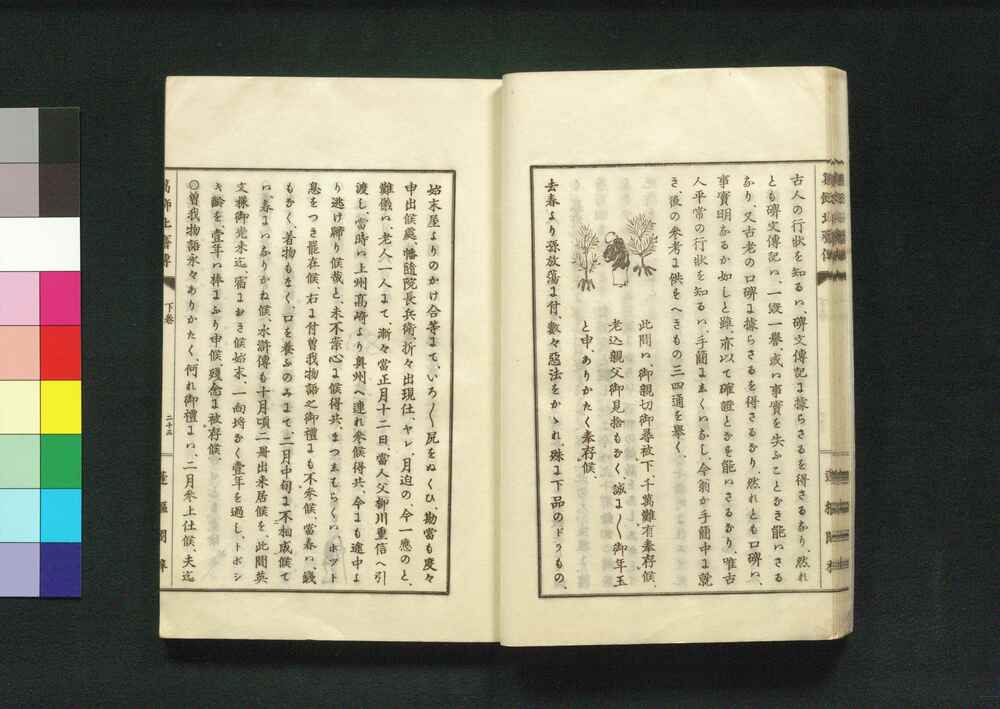 古人の行狀を知るハ、碑文傳記に據らさるを得さるなり、然れ
とも碑文傳記ハ、一毀一譽、或ハ事實を失ふことなき能ハさる
なり、又古老の口碑に據らさるを得さるなり、然れとも口碑ハ、
事實明なるか如しと雖、亦以て確證となを能ハさるなり、唯古
人平常の行狀を知るハ、手簡にまくハなし、今翁か手簡中に就
き、後の參考に供をへきもの三四通を擧く、
此間ハ御親切御尋被下、千萬難有奉存候、
老込親父御見捨もなく、誠に〱御年玉
と申、ありかたく奉存候、
去春より孫放蕩に付、數々惡法をかゝれ、殊に下品のドラもの、
始末屋よりのかけ合等にて、いろ〱尻をぬくひ、勘當も度々
申出候處、幡隨院長兵衛、折々出現仕、ヤレ、月迫の今一應のと、
難儀ハ老人一人にて、漸々當正月十二日、當人父柳川重信へ引
渡し、當時ハ上州高崎より奧州へ連れ參候得共、今にも途中よ
り逃け歸り候哉と、未不案心に候得共、まつまもらくハ、ホツト
息をつき罷在候、右に付曾我物語之御禮にも不參候、當春ハ、錢
もなく、着物もなく、口を養ふのみにて、二月中旬に不相成候て
ハ、春にハなりかね候、水滸傳も十月頃二冊出來居候を、此間英
文樣御光來迄、宿におき候始末、一向埓なく壹年を過し、トボシ
キ齡を、壹年ハ棒にふり申候、殘念に被存候、
◎曾我物語永々ありかたく、何れ御禮にハ、二月參上仕候、夫迄
下卷
二十三